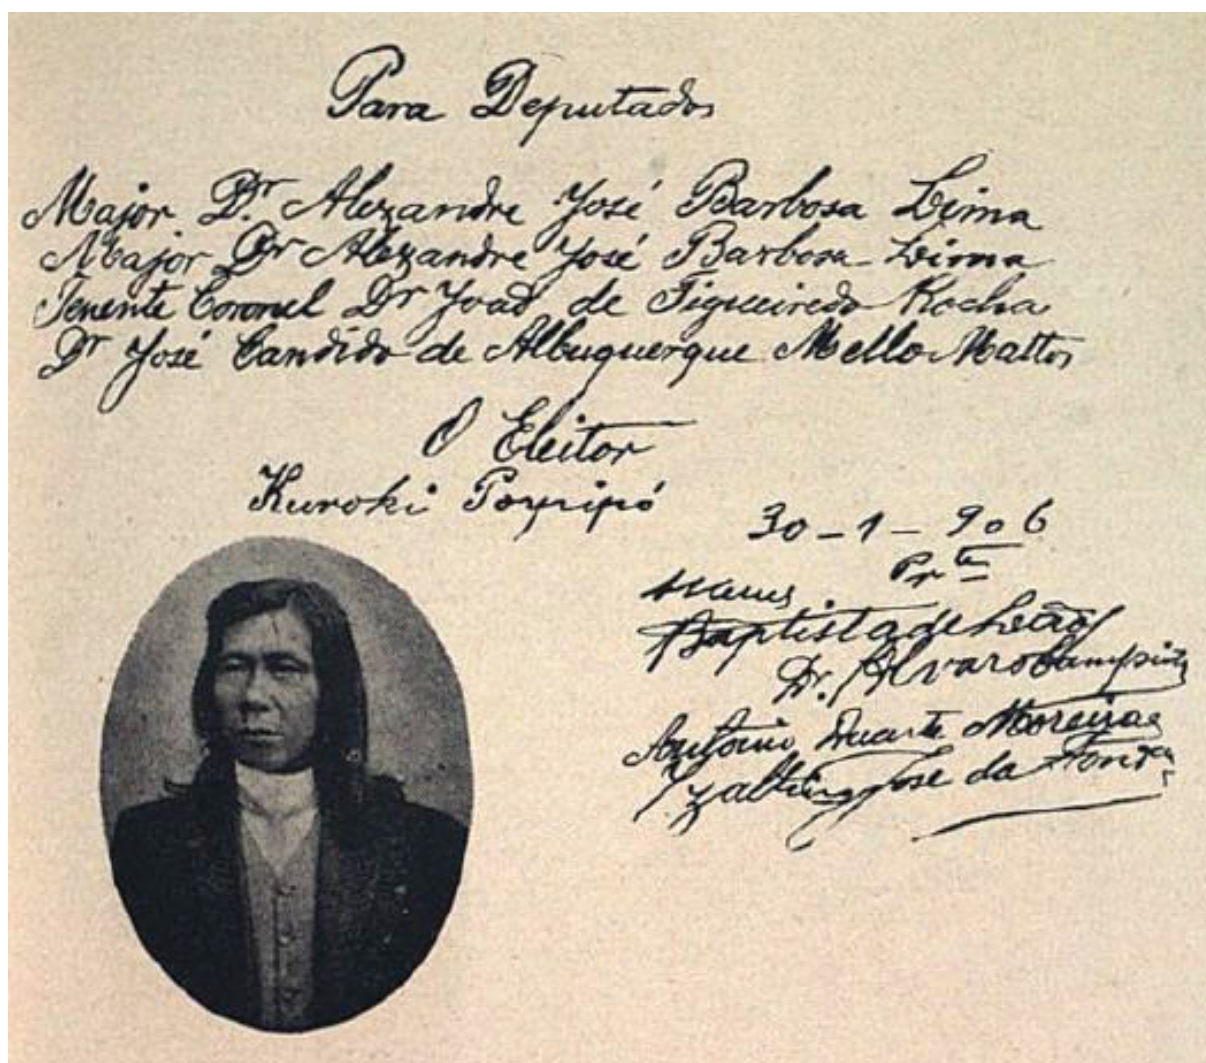 Para Deputados
Major Dr Alexandre José Barbosa Lima
Major Dr Alexandre José Barbosa Lima
Tenente Coronel Dr João de Figueiredo Rocha
Dr José Candido de Albuquerque Mello Mattos
O Eleitor
Kuroki
30-1-906
Baptista de Leão
Dr. Alvaro
Antonio Duarte Moreira
José da